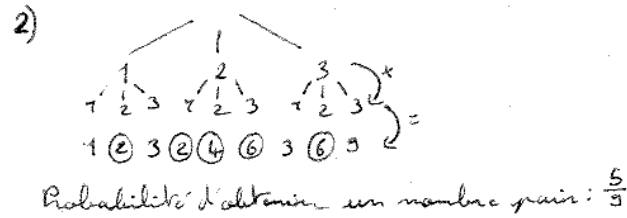 2)
1 2 3
1 2 3 1 2 3 1 2 3 ×
1 2 3 2 4 6 3 6 9 =
Probabilité d'obtenir un nombre pair : 5/9